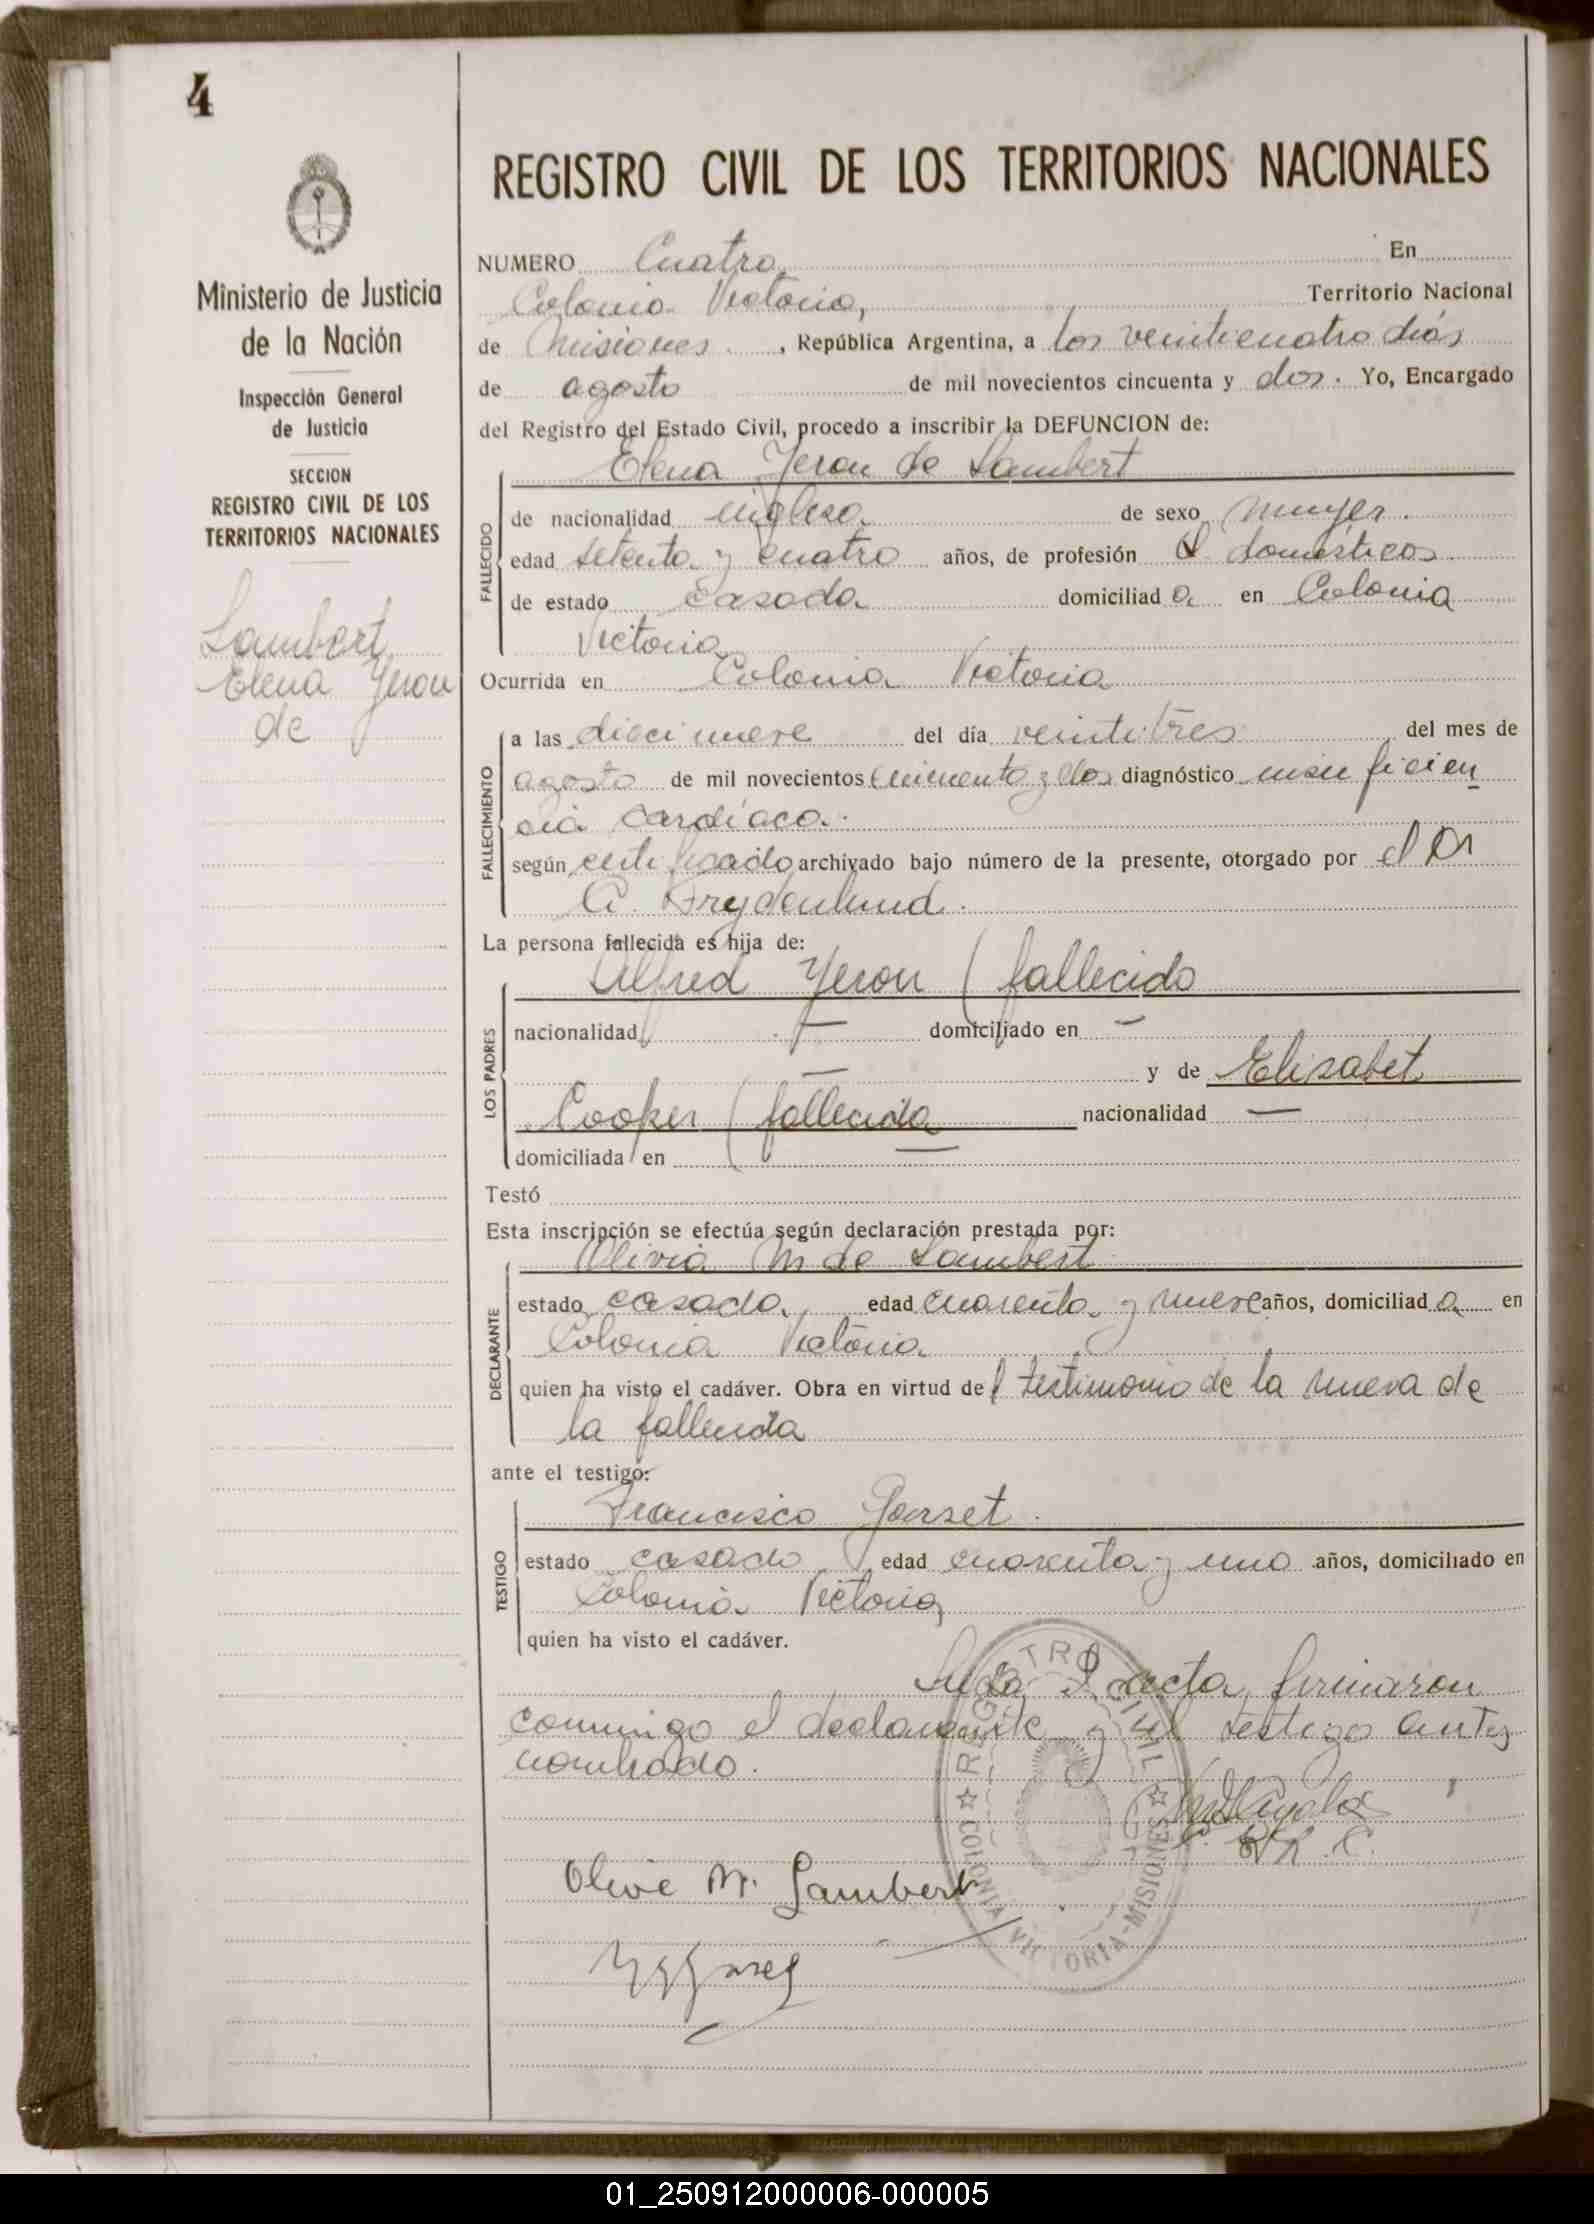 4
Ministerio de Justicia
de la Nación
Inspección General
de Justicia
SECCION
REGISTRO CIVIL DE LOS
TERRITORIOS NACIONALES
Lambert
Elena Yeron
de
REGISTRO CIVIL DE LOS TERRITORIOS NACIONALES
NUMERO Cuatro En
Colonia Victoria, Territorio Nacional
de Misiones, República Argentina, a los veinticuatro días
de agosto de mil novecientos cincuenta y dos. Yo, Encargado
del Registro del Estado Civil, procedo a inscribir la DEFUNCION de:
Elena Yeron de Lambert
FALLECIDO
de nacionalidad inglesa de sexo mujer.
edad setenta y cuatro años, de profesión Q. domésticos
de estado casada domiciliada en Colonia
Victoria
Ocurrida en Colonia Victoria
FALLECIMIENTO
a las diecinueve del día veintitres del mes de
agosto de mil novecientos cincuenta y dos diagnóstico insuficien
cia cardíaca.
según certificado archivado bajo número de la presente, otorgado por el Dr
A. Frydenlund.
La persona fallecida es hija de:
LOS PADRES
Alfred Yeron (fallecido
nacionalidad — domiciliado en —
— y de Elisabet
Cooker (fallecida nacionalidad —
domiciliada en —
Testó
Esta inscripción se efectúa según declaración prestada por:
DECLARANTE
Olivia M de Lambert
estado casada edad cuarenta y nueve años, domiciliada en
Colonia Victoria
quien ha visto el cadáver. Obra en virtud del testimonio de la nuera de
la fallecida
ante el testigo:
TESTIGO
Francisco Garset.
estado casado edad cuarenta y uno años, domiciliado en
Colonia Victoria
quien ha visto el cadáver.
Leida el acta, firmaron
conmigo el declarante y el testigo antes
nombrado.
E. R. C.
REGISTRO CIVIL
COLONIA VICTORIA - MISIONES
Olive M. Lambert
01_250912000006-000005